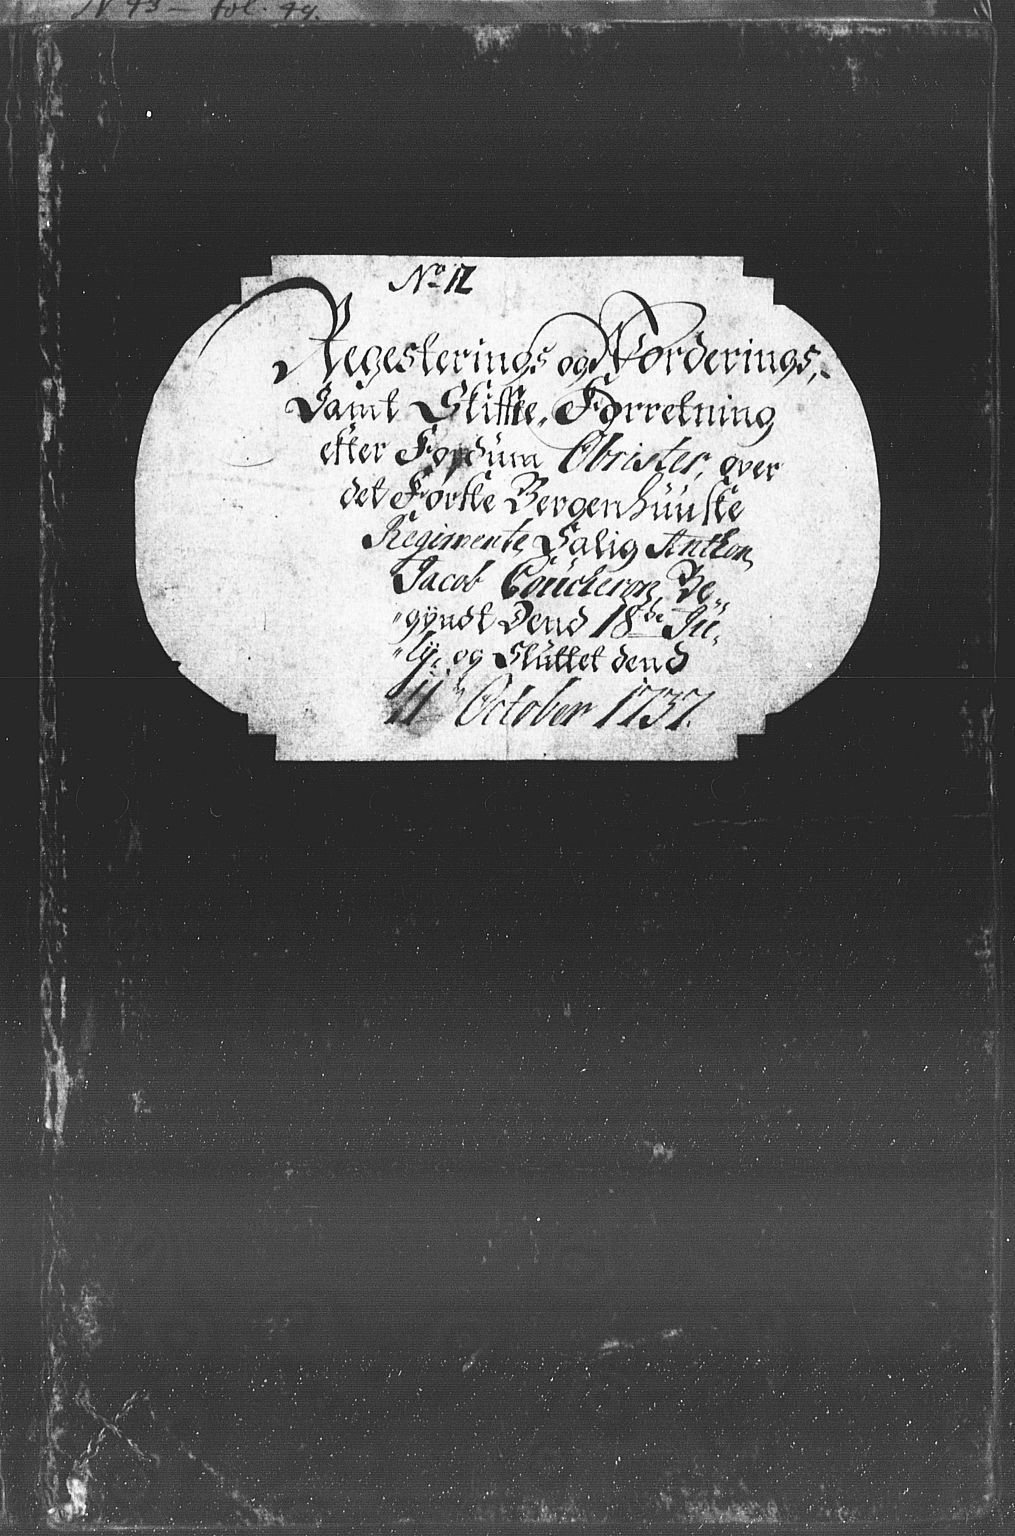 N 43 — fol. 49.
No 12
Regesterings og Worderings,
Samt Skiffte, Forretning
efter Fordum Obrister, over
det Førske Bergenhuuske
Regimente, Salig Anthon
Jacob Coucheron, Be-
gyndt Dend 18de Ju-
ly, og Sluttet dend
11te October 1737.